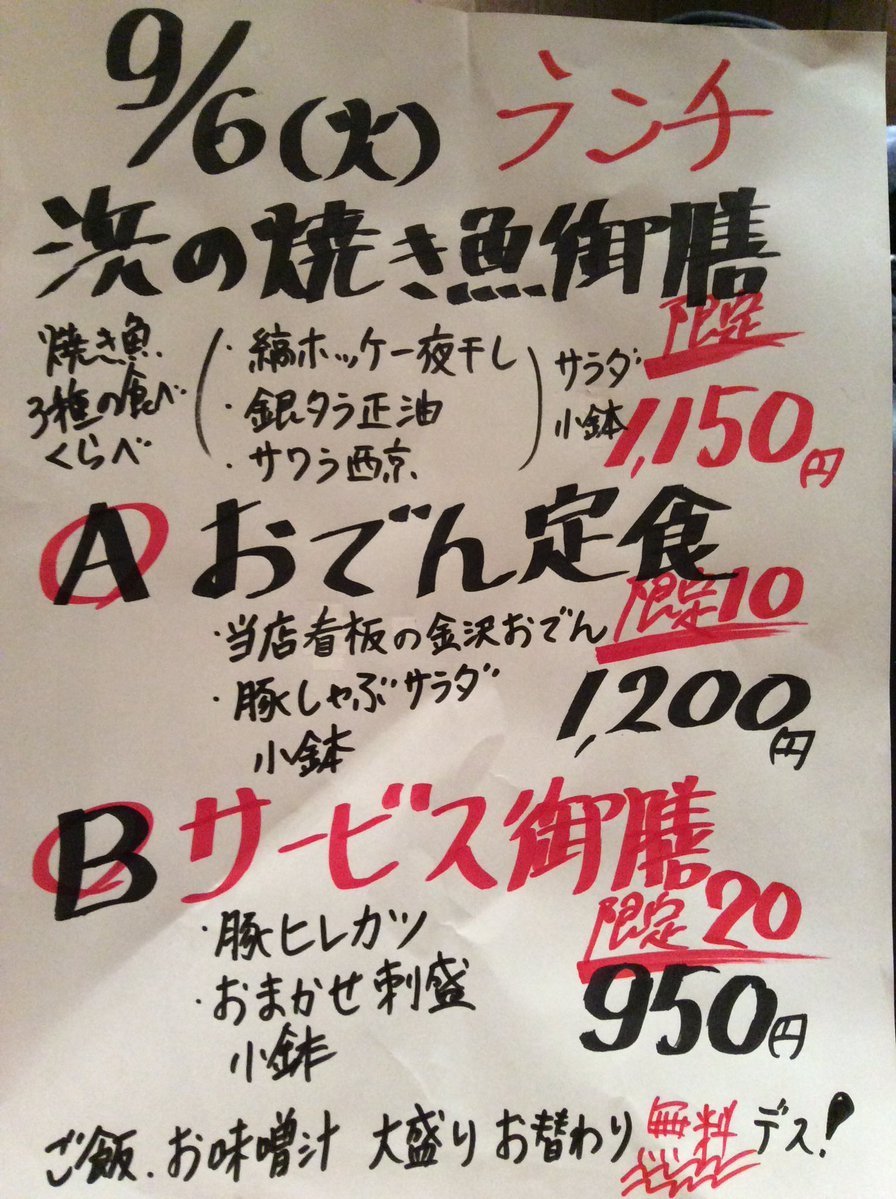 9/6(火) ランチ
浜の焼き魚御膳
限定
焼き魚
3種の食べ
くらべ
・縞ホッケ一夜干し
・銀タラ正油
・サワラ西京
サラダ
小鉢
1,150円
A おでん定食
限定10
・当店看板の金沢おでん
・豚しゃぶサラダ
小鉢
1,200円
B サービス御膳
限定20
・豚ヒレカツ
・おまかせ刺盛
小鉢
950円
ご飯、お味噌汁 大盛り お替わり 無料デス!